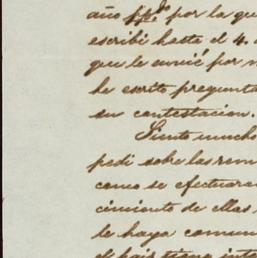 año ppdo por la que
escribi hasta el 4.
que le envié por
he escrito pregunta
su contestacion.
Siento mucho
pedi sobre las rem
como se efectuaron
cimiento de ellas
le haya comun
el pais tiene inte